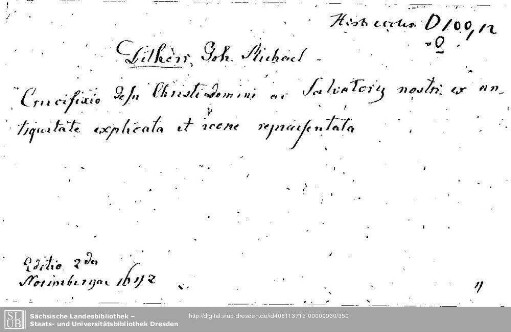 Hist. eccles. D 100, 12
Dilherr, Joh. Michael
Crucifixio Jesu Christi Domini ac Salvatoris nostri ex an-
tiquitate explicata et icone repraesentata
Editio 2da
Norimbergae 1642
Sächsische Landesbibliothek –
Staats- und Universitätsbibliothek Dresden